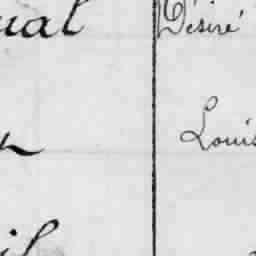 ual Désiré
Louis
il